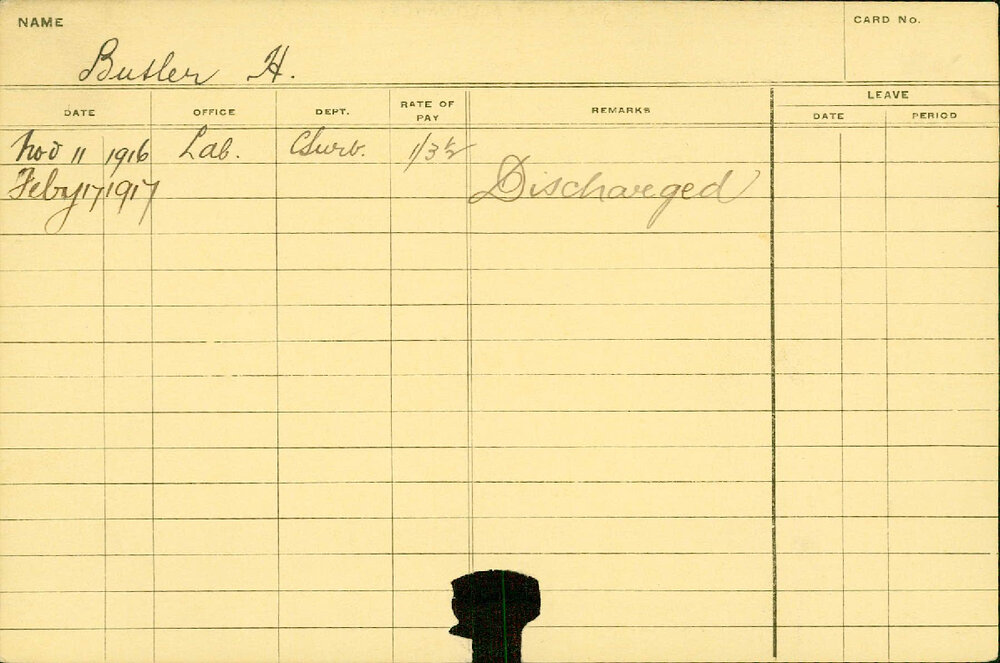 NAME
CARD No.
Butler H.
DATE OFFICE DEPT. RATE OF PAY REMARKS LEAVE
DATE PERIOD
Nov 11 1916 Lab. 1/3½
Feby 17 1917 Discharged